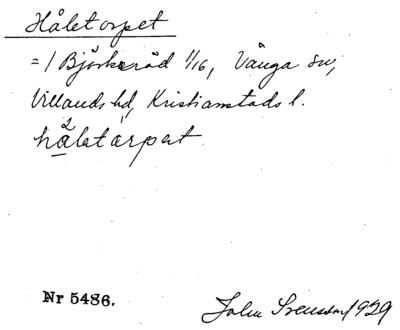 Håletorpet
= / Björkeröd 1/16, Vånga sn,
Villands hd, Kristianstads l.
håletårpat
Nr 5486.
John Svensson 1929